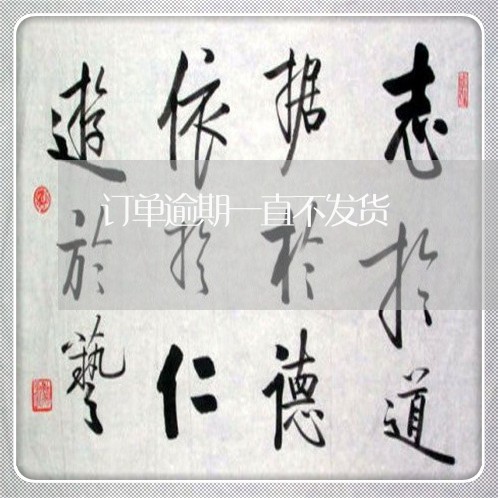 志於道
据於德
依於仁
遊於藝
订单逾期一直不发货